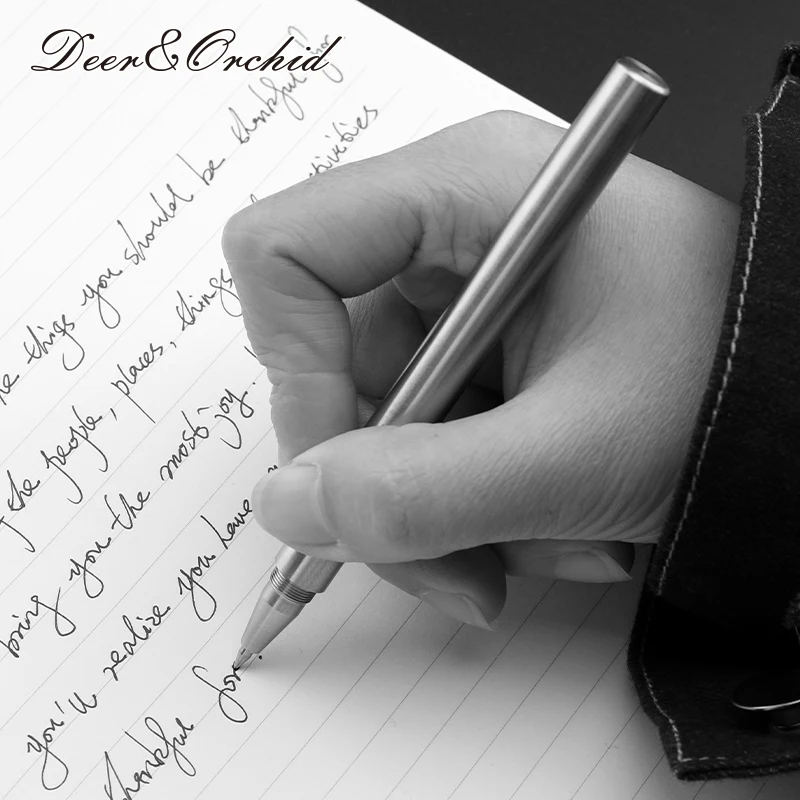 Deer&Orchid
things you should be thankful for
ctivities
the people, places, things
bring you the most joy.
you'll realize you have
thankful for